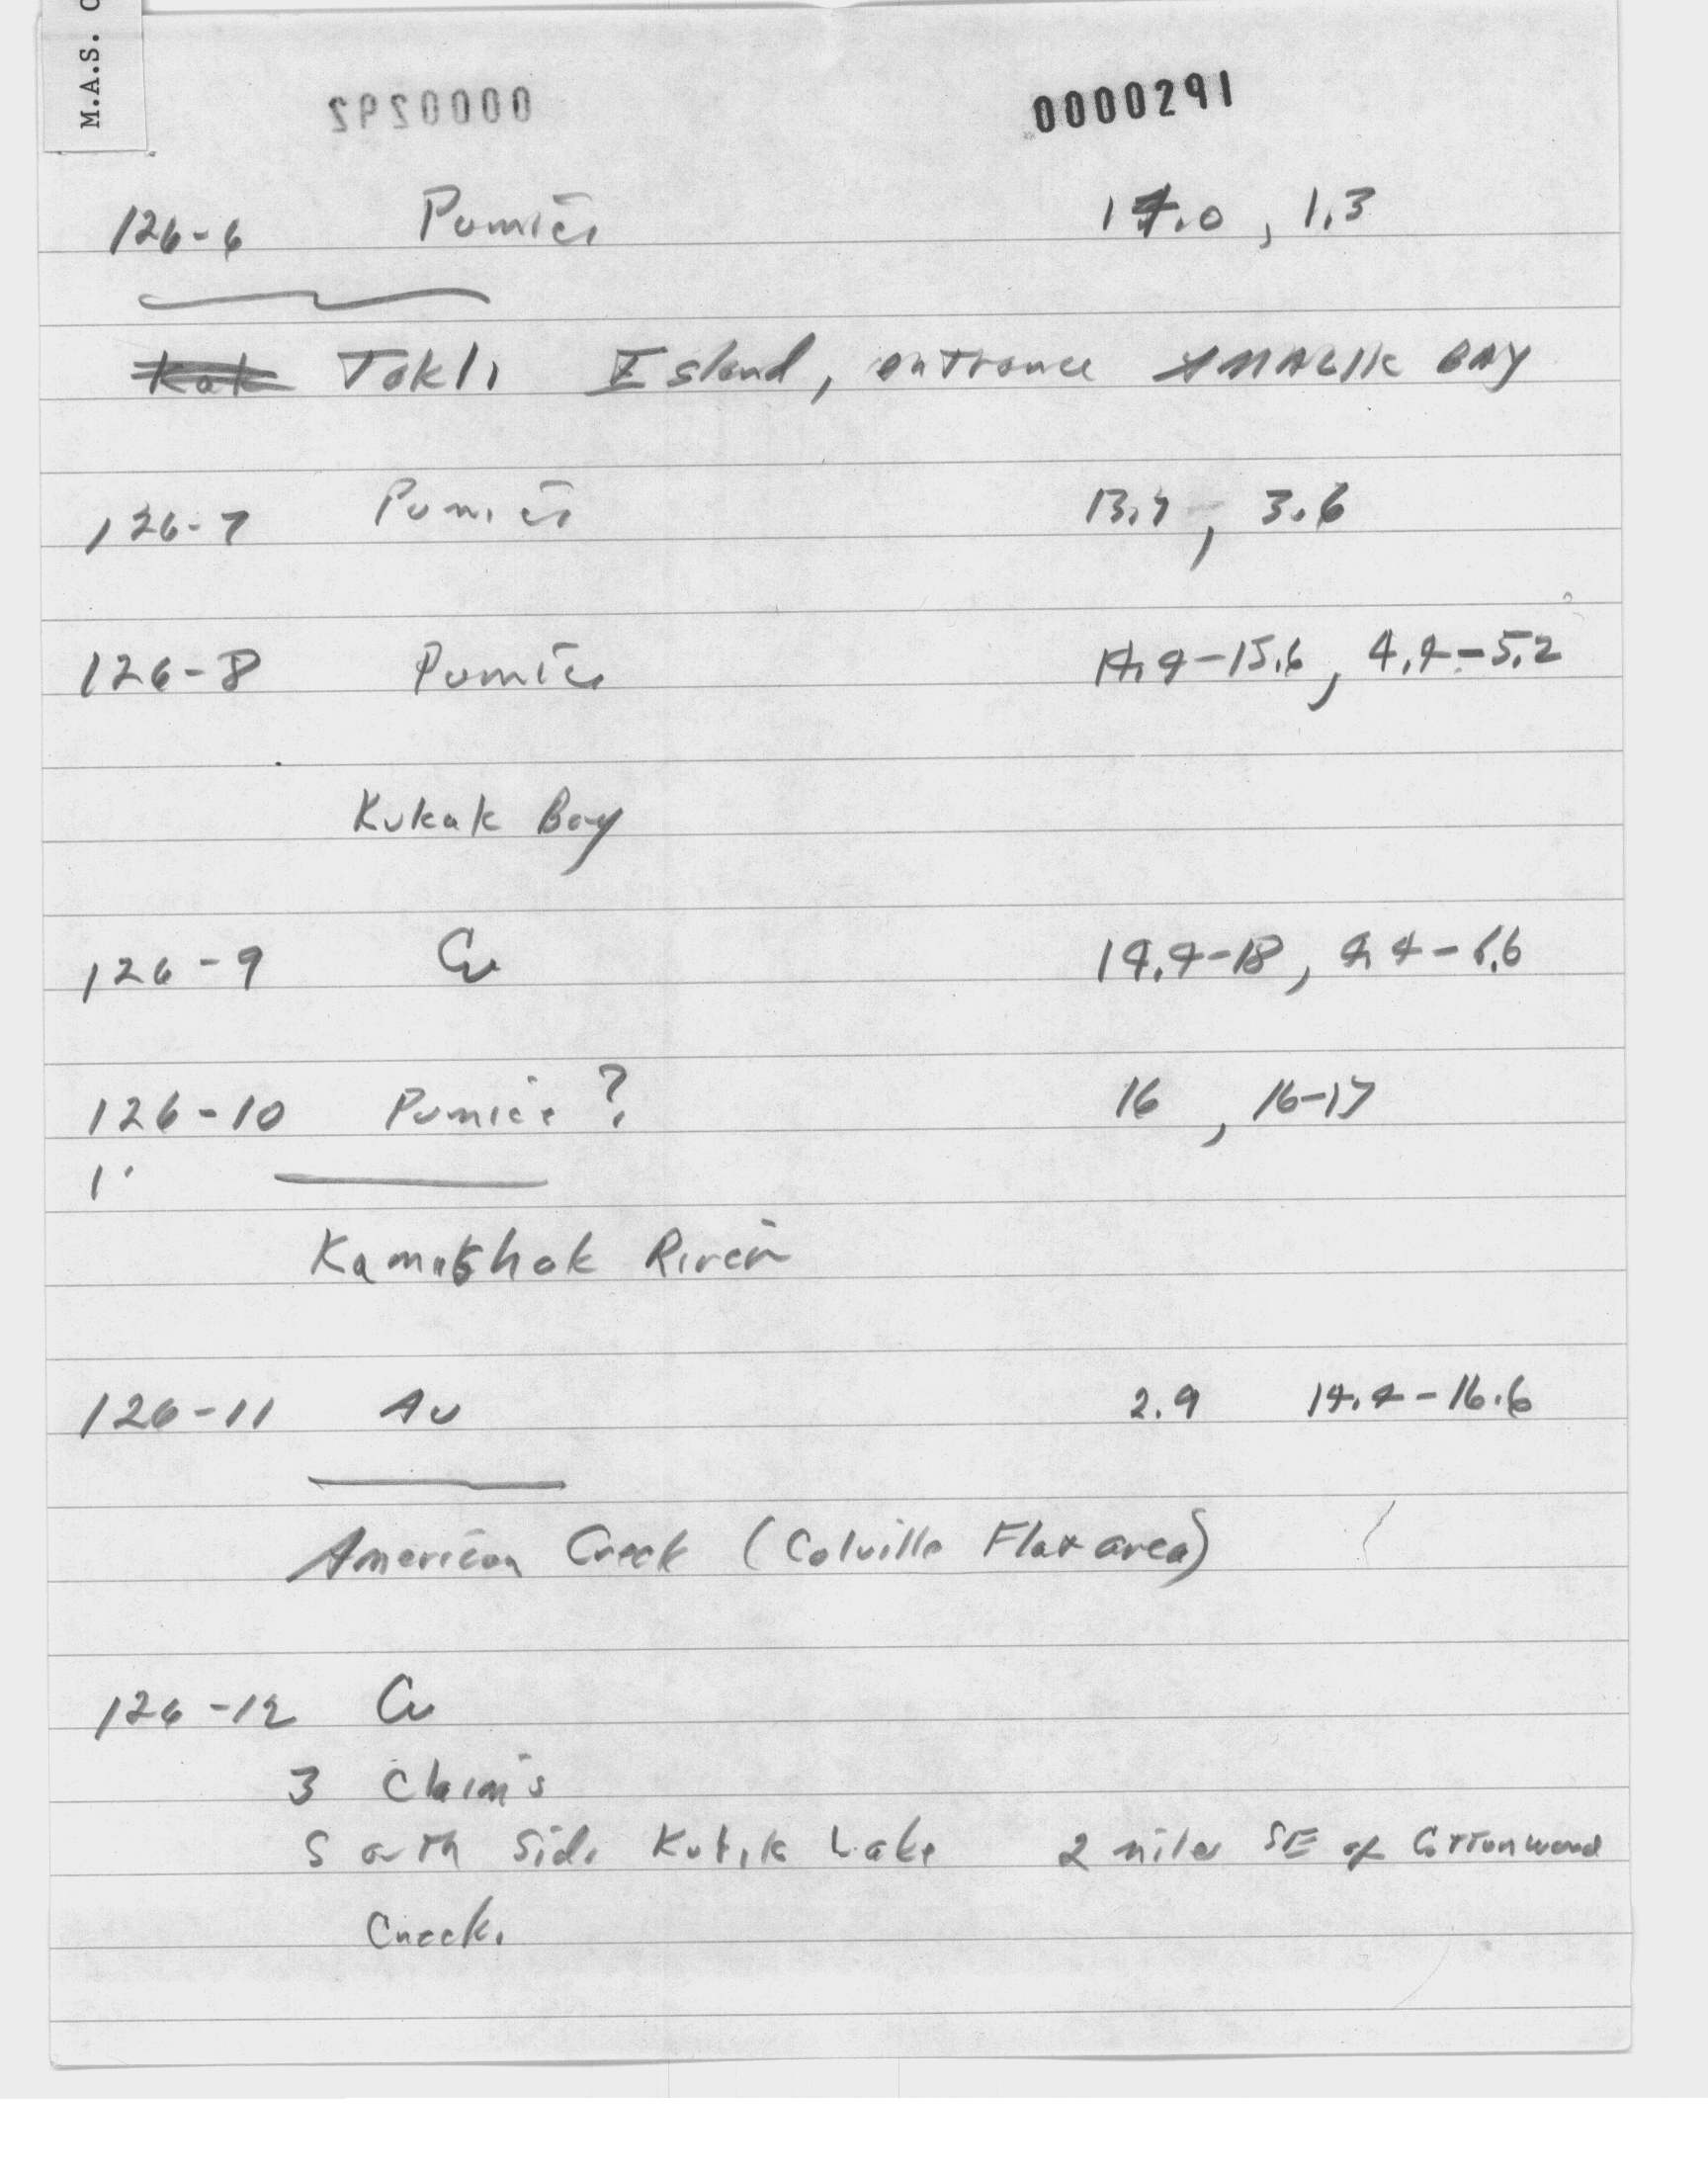 M.A.S.
0000292
0000291
126-6 Pumice 17.0, 1.3
Kak Takli Island, entrance AMALIK BAY
126-7 Pumice 13.4, 3.6
126-8 Pumice 14.4-15.6, 4.4-5.2
Kukak Bay
126-9 Cu 14.4-18, 4.4-6.6
126-10 Pumice? 16, 16-17
Kamishak River
126-11 Au 2.9 14.4-16.6
American Creek (Colville Flat area)
126-12 Cu
3 Claims
South Side Kukik Lake 2 miles SE of Cottonwood
Creek.